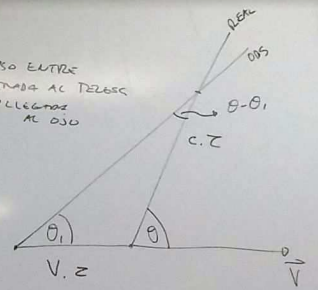 SO ENTRE
AL TELESC
LLEGADA
AL OJO
REAL
OBS
θ-θ₁
c.τ
θ₁
θ
V.τ
V